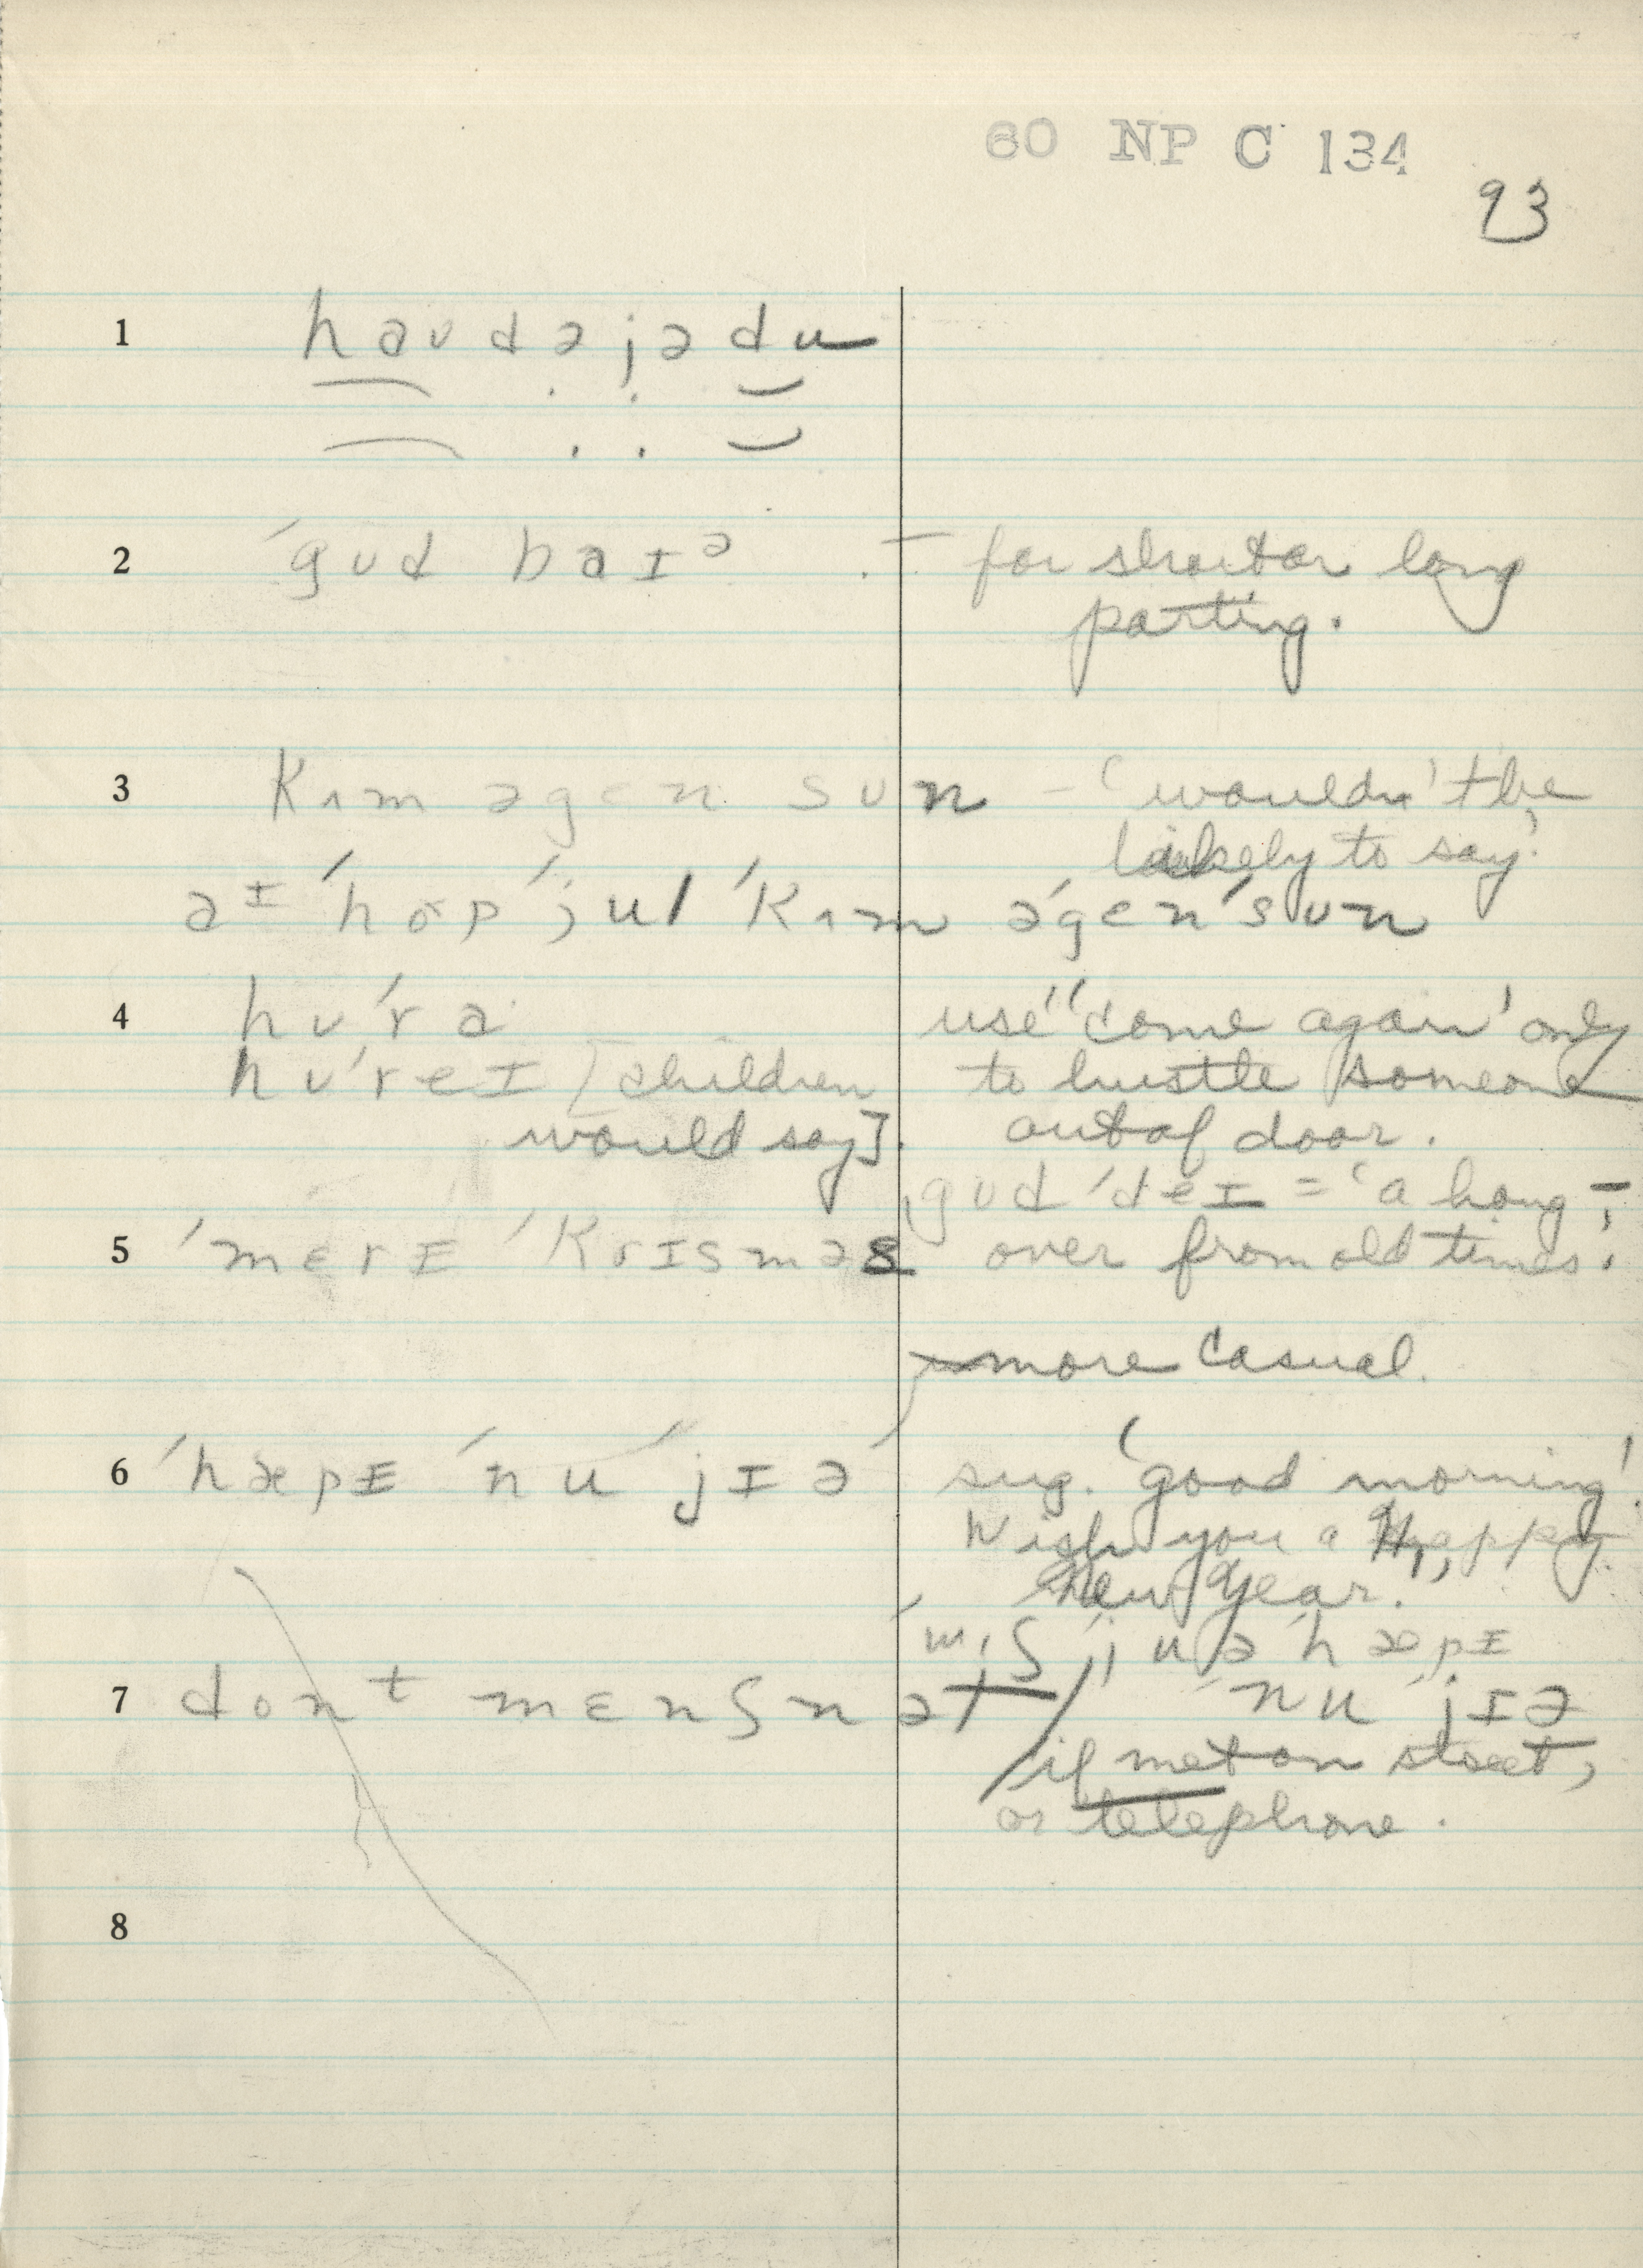 60 NP C 134
93
1 haʊdəjədu
2 ˈgʊd baɪᵊ — for short or long
parting.
3 kʌm əgɛn sun — 'wouldn't be
likely to say'.
aɪ ˈhop ˈjul ˈkʌm əˈgɛn ˈsun
4 hʊˈra
hʊˈreɪ [children
would say].
use "come again' only
to hustle someone
out of door.
gʊd ˈdeɪ = 'a hang-
over from old times'.
5 ˈmɛrɪ ˈkrɪsməs
more casual.
6 ˈhæpɪ ˈnu ˈjɪə
sug. 'good morning'!
Wish you a Happy
New Year.'
ˈwɪʃ ju ə ˈhæpɪ
ˈnu ˈjɪə
7 dont mɛnʃnət
if met on street,
or telephone.
8